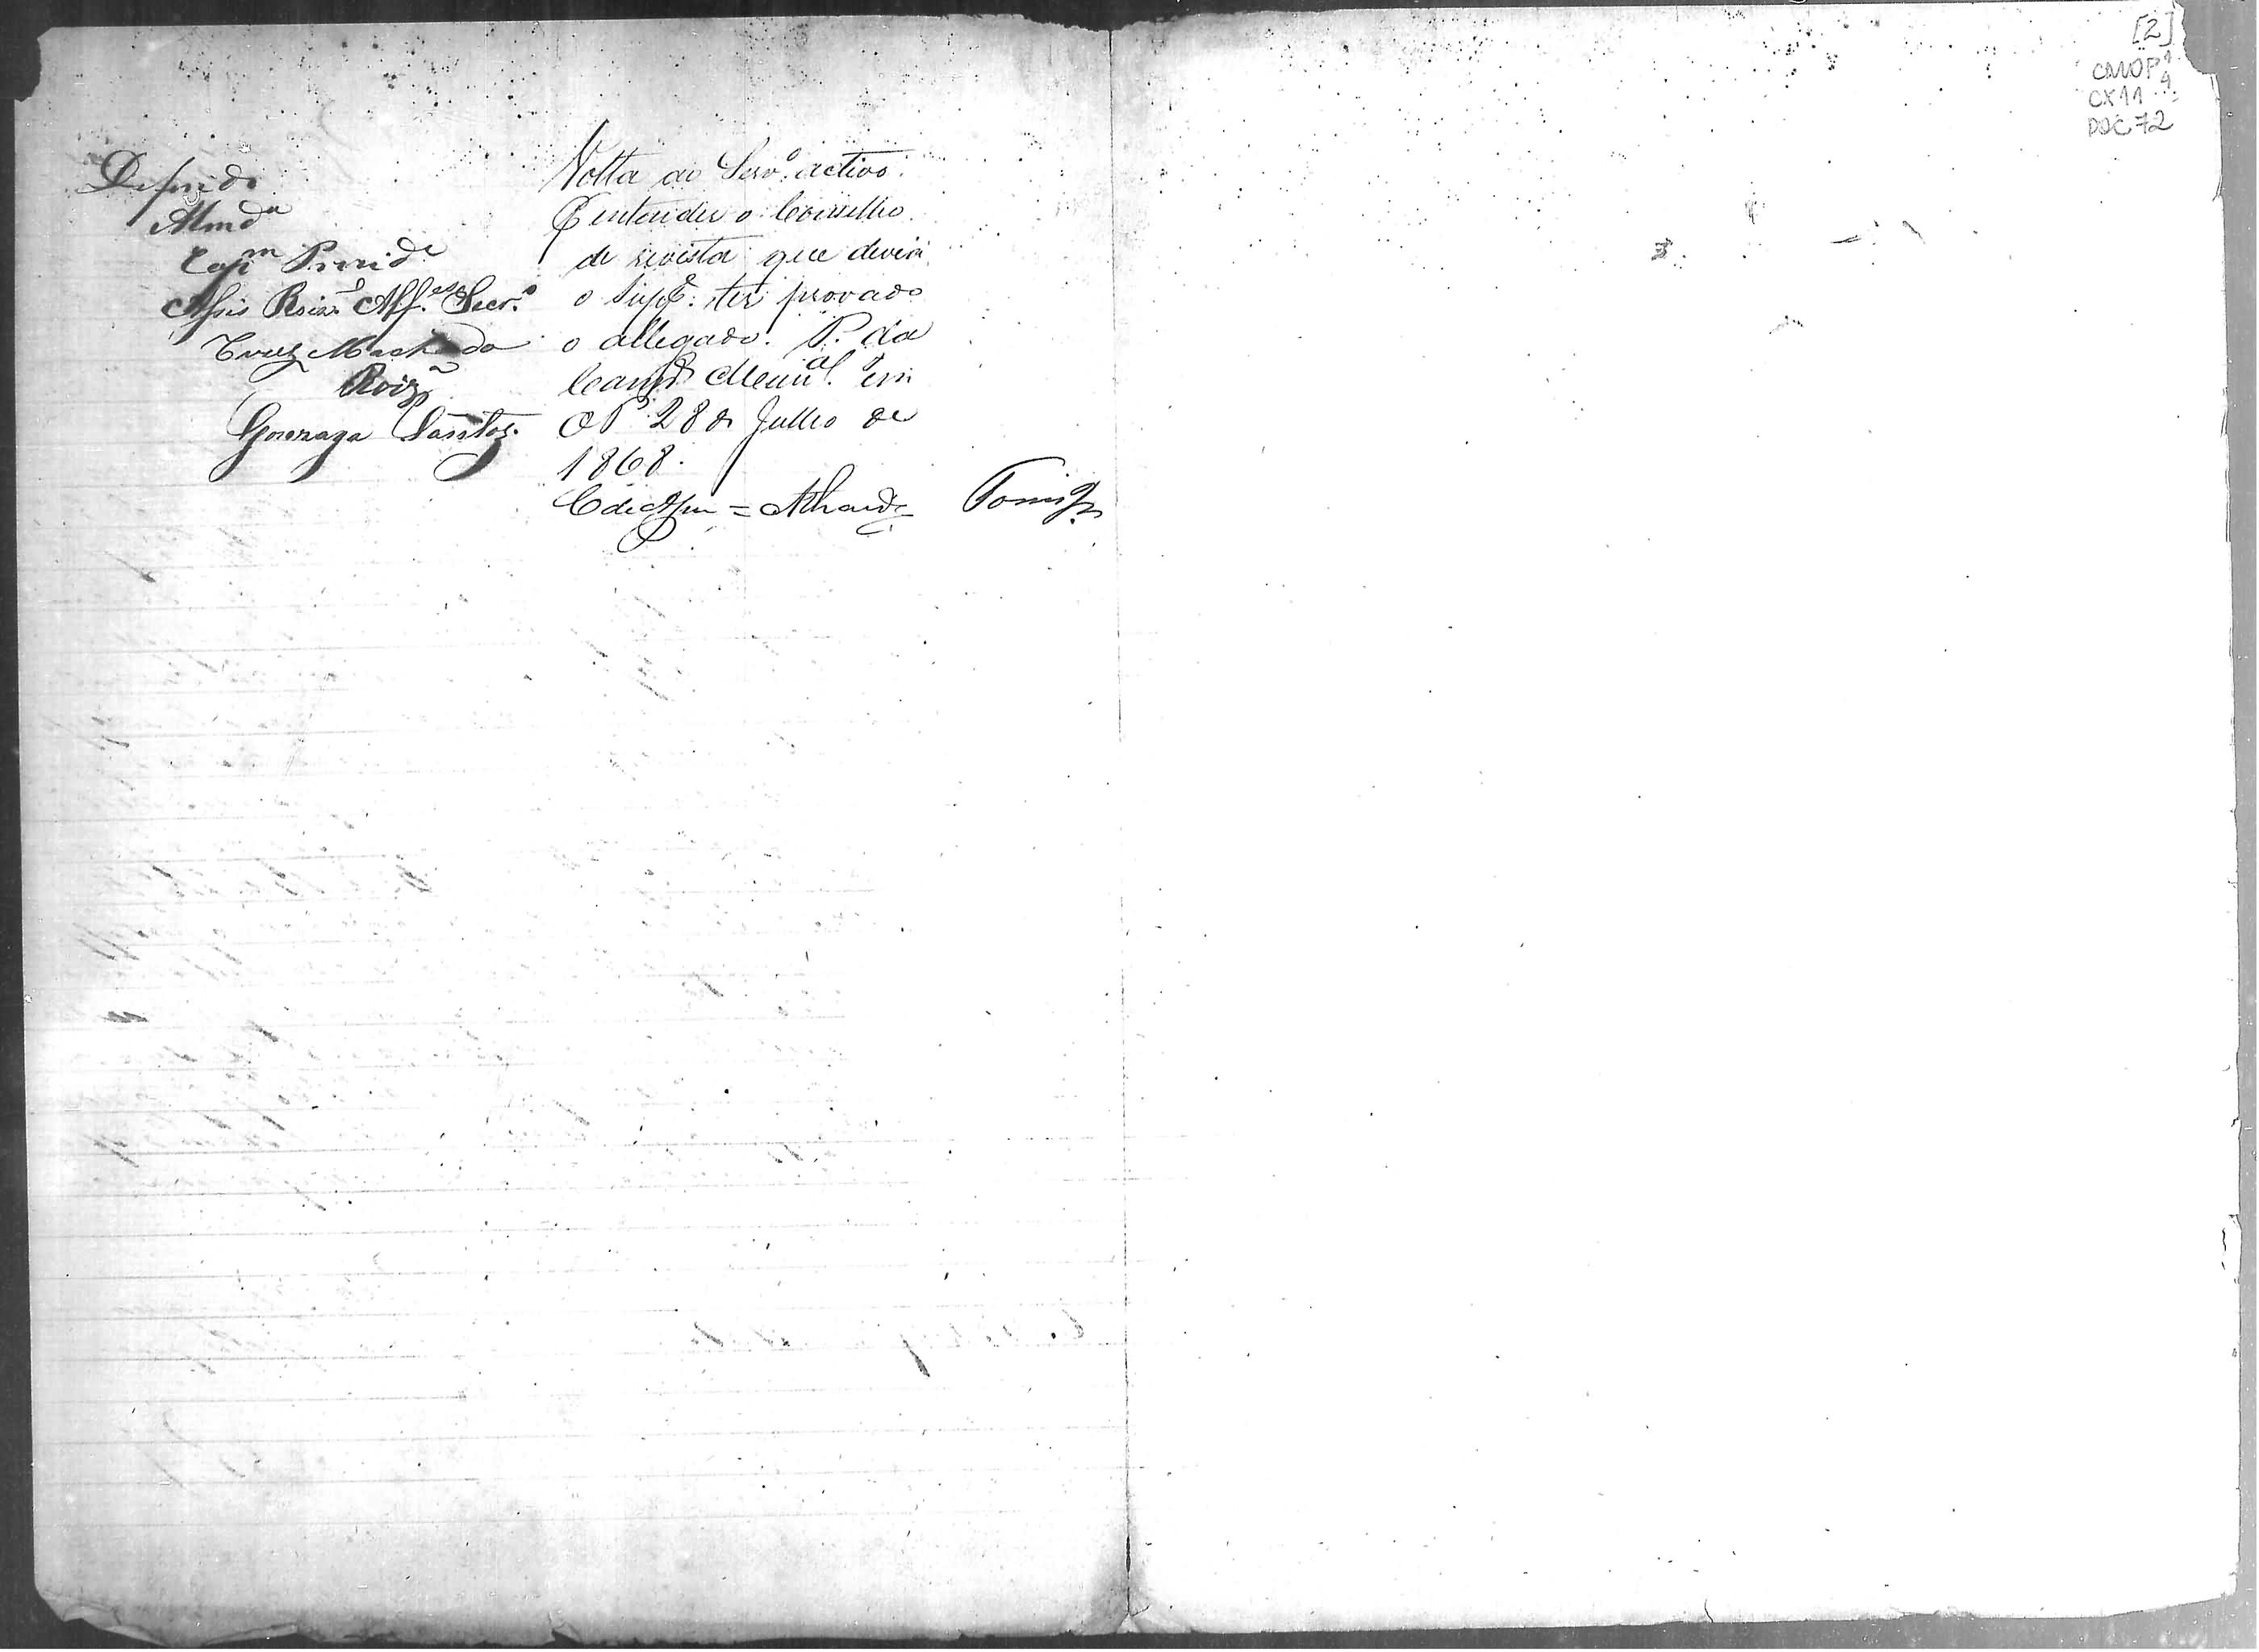 [2]
CMOP
CX 11
DOC 72
Deferido
Almd.ª
Cap.m Presid.e
Assis Roiz. Alf.es Secr.o
Cruz Machado
Roiz
Gonzaga Santos.
Volta ao Serv.o activo.
entender o Conselho
de revista que devia
o Supp.e ter provado
o allegado. P. da
Cam.ª Mun.al em
OP 28 de Julho de
1868.